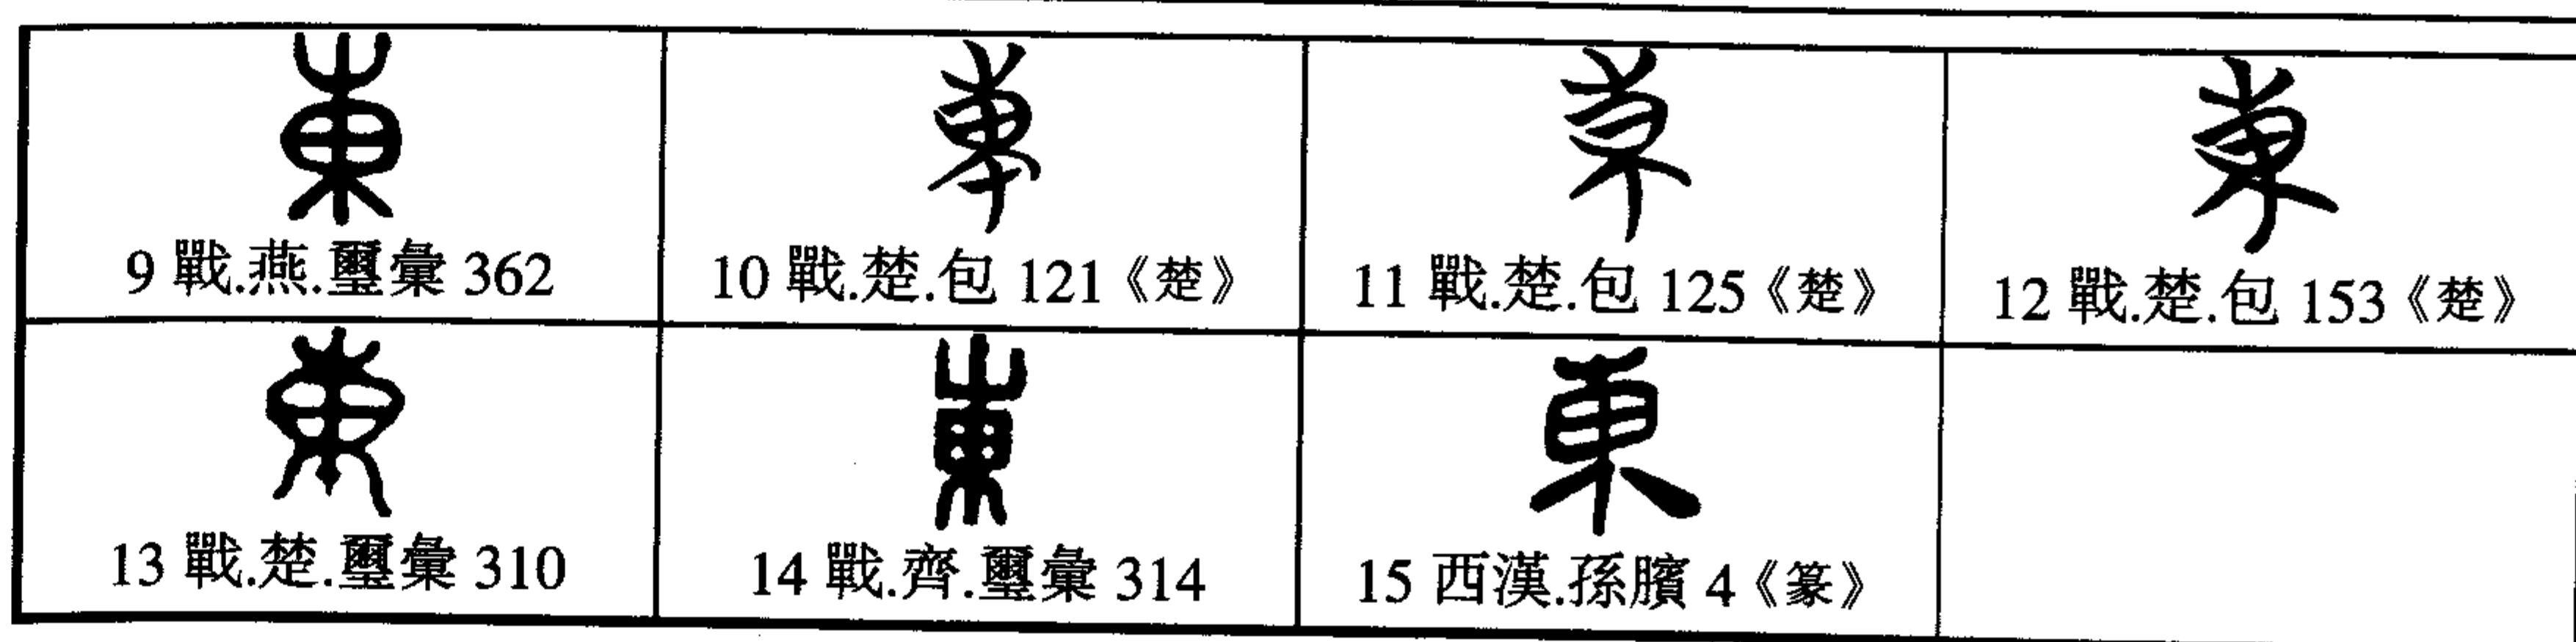 東 東 東 東
9 戰.燕.璽彙 362 10 戰.楚.包 121《楚》 11 戰.楚.包 125《楚》 12 戰.楚.包 153《楚》
東 東 東
13 戰.楚.璽彙 310 14 戰.齊.璽彙 314 15 西漢.孫臏 4《篆》